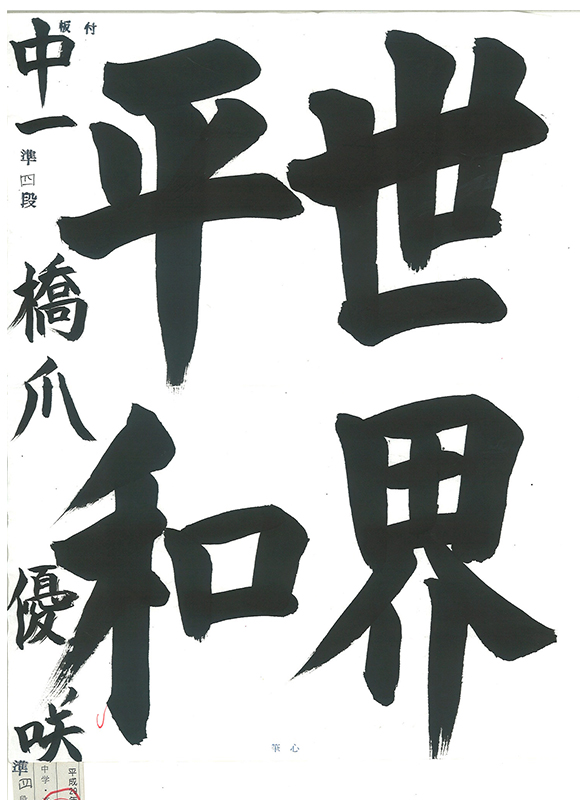 世界
平和
中一
準四段
橋爪優咲
付
板
心筆
平成29年
中学・
準四段